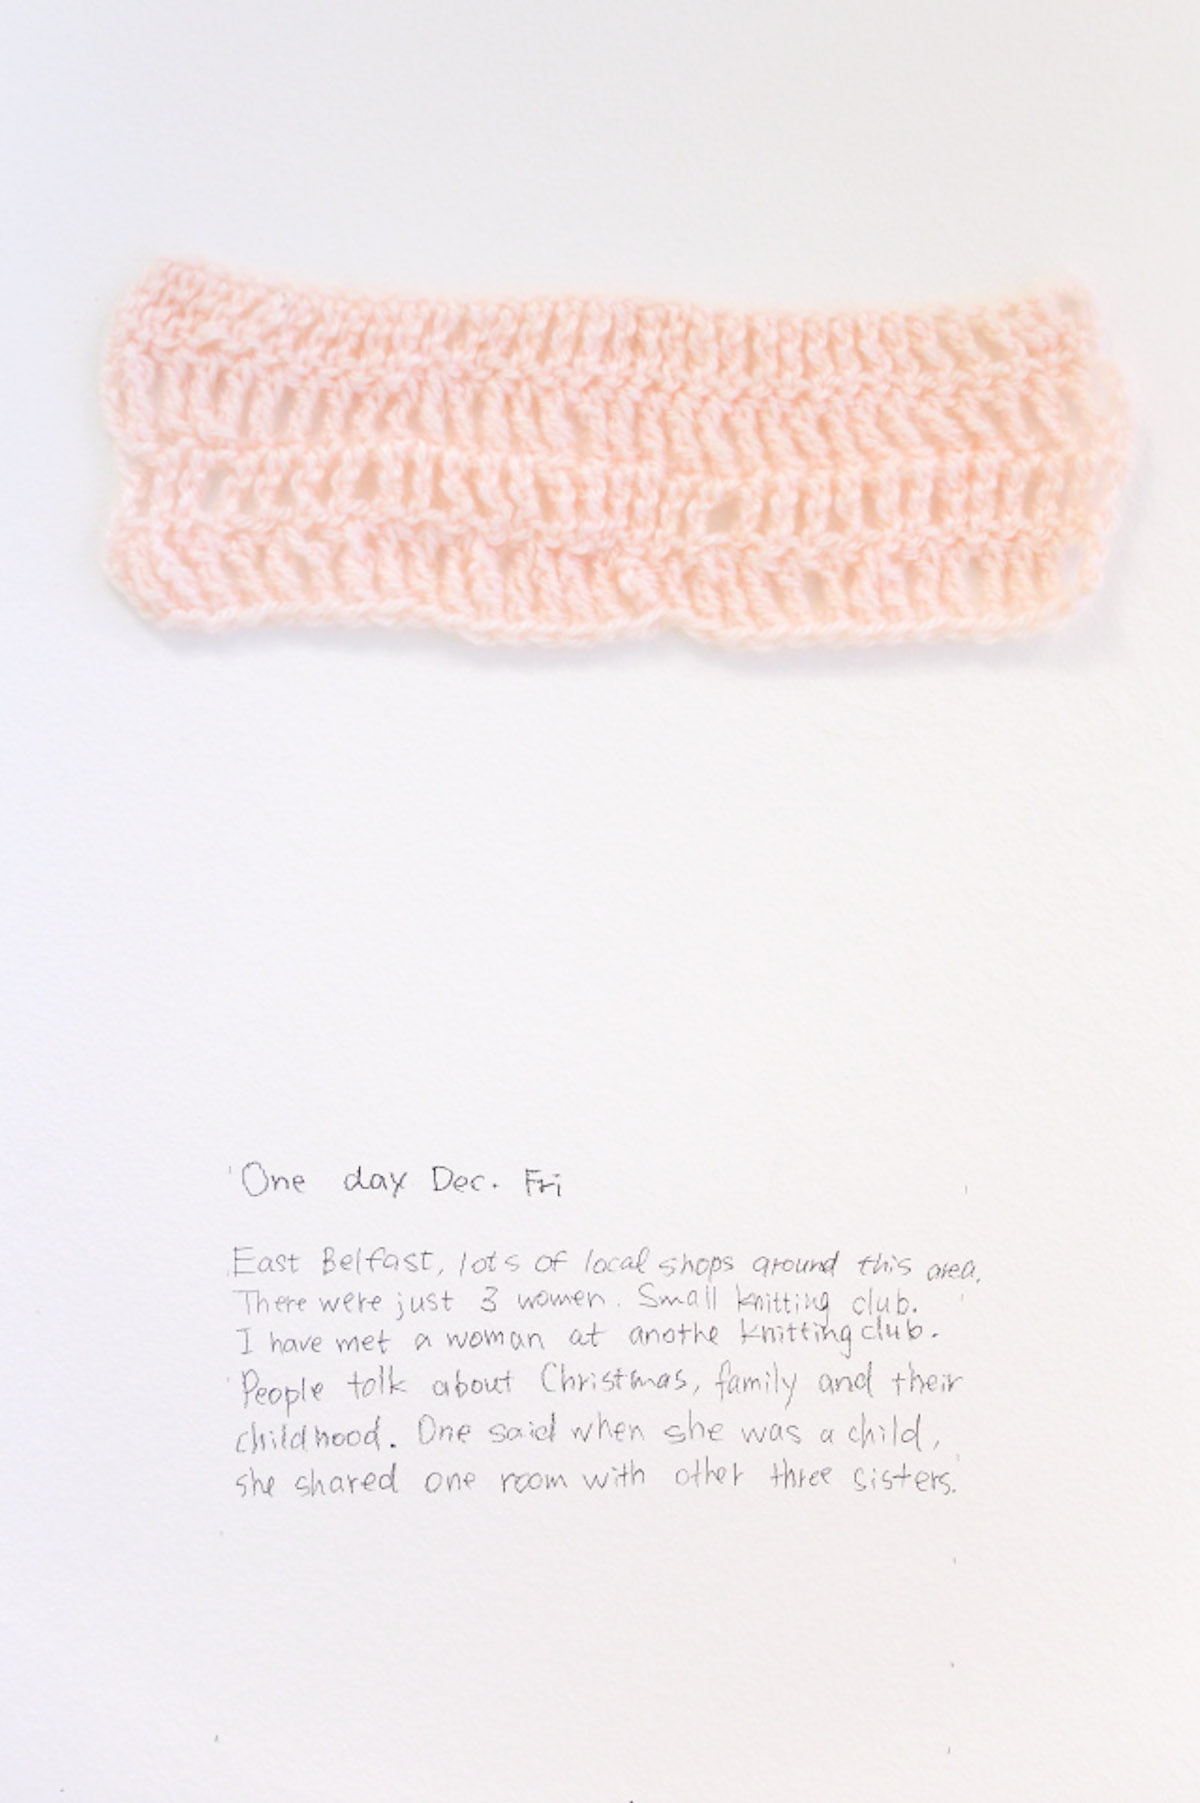 One day Dec. Fri
East Belfast, lots of local shops around this area.
There were just 3 women. Small knitting club.
I have met a woman at anothe knitting club.
People talk about Christmas, family and their
childhood. One said when she was a child,
she shared one room with other three sisters.